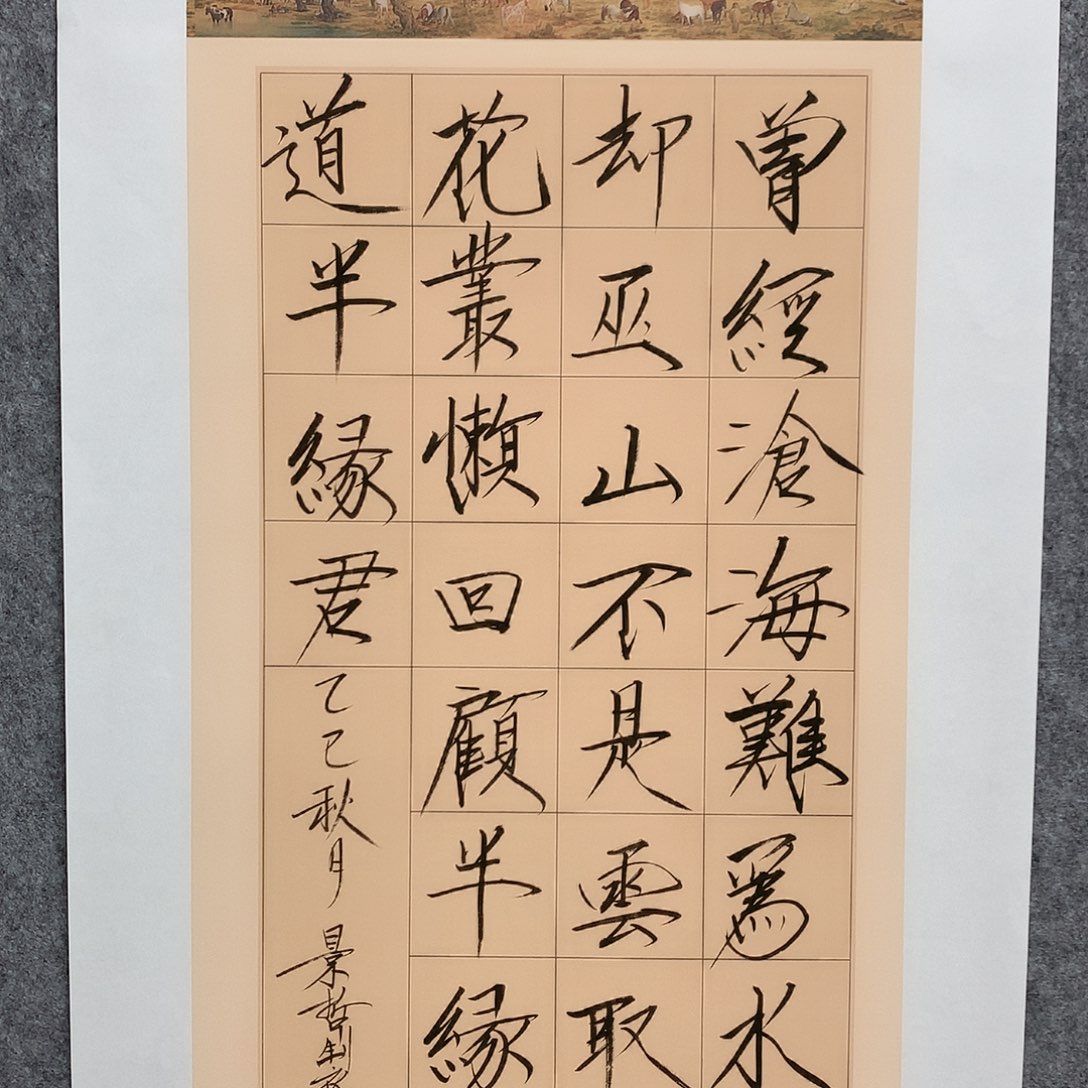 曾經滄海難爲水
却巫山不是雲取
花叢懶回顧半緣
道半緣君
乙巳秋月 景哲